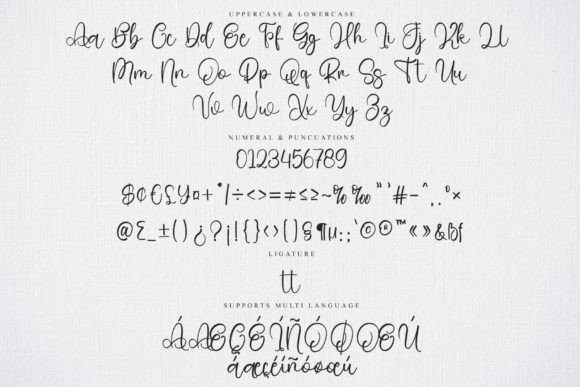 UPPERCASE & LOWERCASE
Aa Bb Cc Dd Ee Ff Gg Hh Ii Jj Kk Ll
Mm Nn Oo Pp Qq Rr Ss Tt Uu
Vv Ww Xx Yy Zz
NUMERAL & PUNCUATIONS
0123456789
$¢€£¥¤+*/÷<>=≠≤≥~%‰"'#-^,.°×
@Σ_±()¿?¡!{}‹›[]§¶µ:;`©®™«»&
LIGATURE
tt
SUPPORTS MULTI LANGUAGE
ÁÆŒÇÉÍÑÓØŒÚ
áæçéíñóøœú